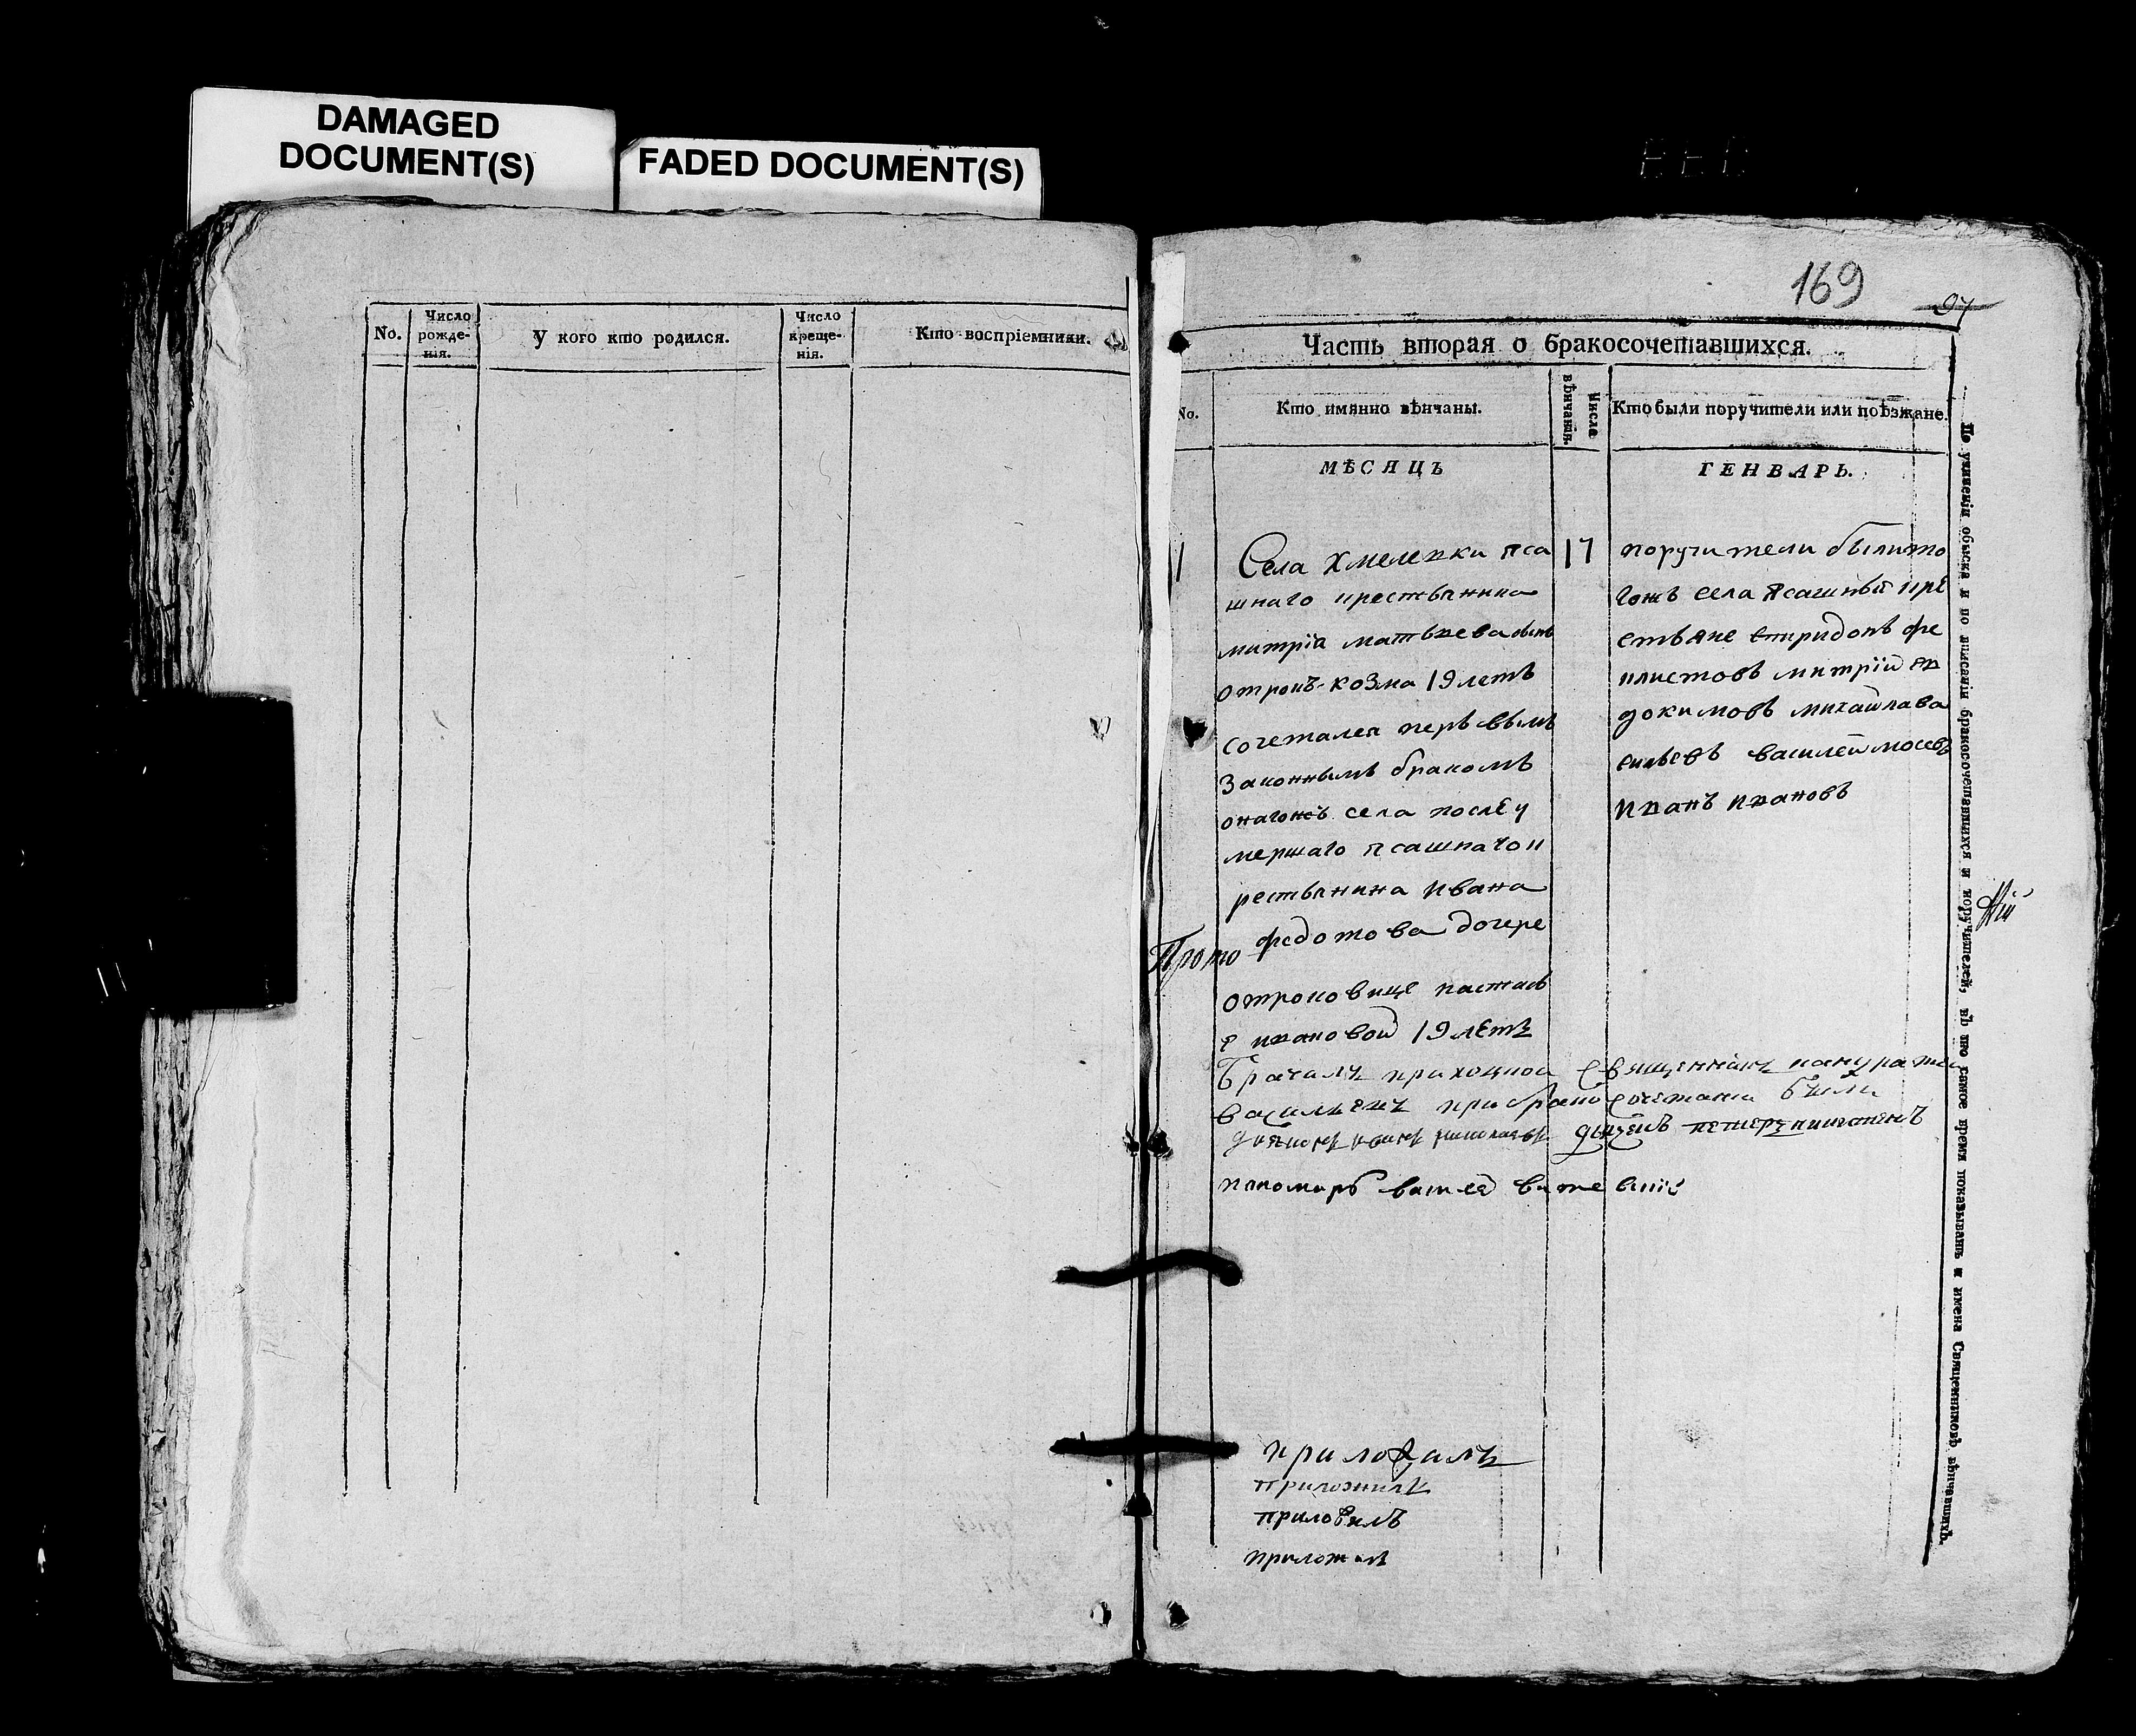 DAMAGED
DOCUMENT(S)
FADED DOCUMENT(S)
No.
Число
рожде-
нія.
У кого кто родился.
Число
креще-
нія.
Кто воспріемники.
169
97
Часть вторая о бракосочетавшихся.
No.
Кто имянно вѣнчаны.
Числа
вѣнчанія.
Кто были поручители или поѣзжане.
МѢСЯЦЪ
ГЕНВАРЬ.
1
Села Хмелевки паса
шнаго крестьянина
митрія матвѣева сынъ
отрокъ козма 19 летъ
сочетался первымъ
законнымъ бракомъ
онагожъ села послѣ у
мершаго пашнаго к
рестьянина Ивана
федотова дочере
отроковице настась
е ивановой 19 летъ
17
поручители были то
гожъ села пашныи кре
стьяне спиридонъ фе
листовъ митрій ев
докимовъ михайла ва
сильевъ василей мосевъ
иванъ ивановъ
Прото
Бракъ приходной священникъ
васильевъ при бракосочетании были
диаконъ иванъ
пономарь
приложилъ
приложилъ
приложилъ
приложилъ
По учиненіи обыска и по вписаніи бракосочетавшихся и поручителей, въ то самое время показывать и имена Священниковъ вѣнчавшихъ.